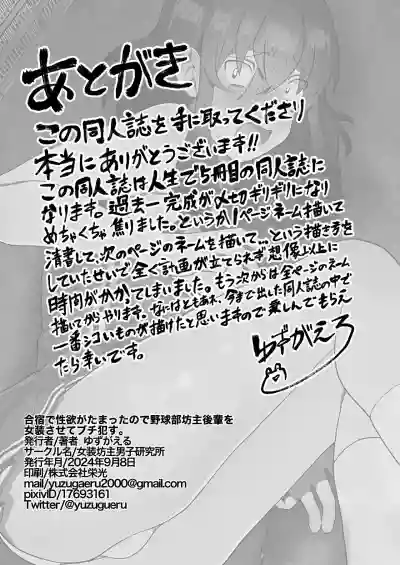 あとがき
この同人誌を手に取ってくださり
本当にありがとうございます!!
この同人誌は人生で5冊目の同人誌に
なります。過去一完成が〆切ギリギリになり
めちゃくちゃ焦りました。というか1ページネーム描いて
清書して、次のページのネームを描いて…という描き方を
していたせいで全く計画が立てられず想像以上に
時間がかかってしまいました。もう次からは全ページのネーム
描いてからやります。なにはともあれ、今まで出した同人誌の中で
一番シコいものが描けたと思いますので楽しんでもらえ
たら幸いです。
ゆずがえる
合宿で性欲がたまったので野球部坊主後輩を
女装させてブチ犯す。
発行者/著者 ゆずがえる
サークル名/女装坊主男子研究所
発行年月/2024年9月8日
印刷/株式会社栄光
mail/yuzugaeru2000@gmail.com
pixivID/17693161
Twitter/@yuzugueru